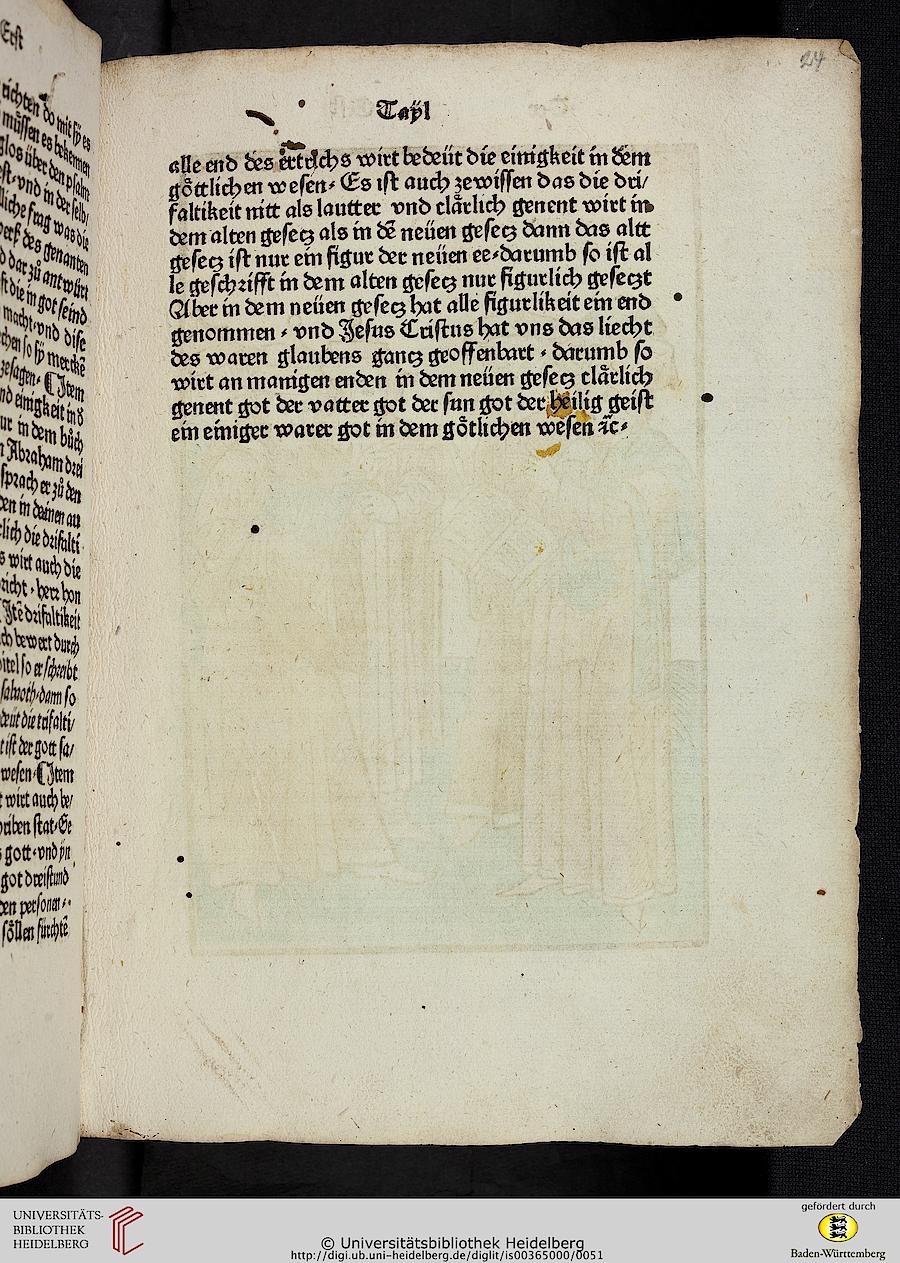 Erst
richten do mit sÿ es
müssen es bekennen
glos über den psalm
vnd in der selb/
liche frag was die
werk des genanten
dar zů antwürt
st die in got seind
macht vnd dise
chen so sÿ merckē
zesagen ⸗ ¶ Item
nd einigkeit in d̄
ur in dem bůch
n Abraham drei
sprach er zů den
den in deinen au
lich die drifalti
s wirt auch die
richt ⸗ herr hon
Itē drifaltikeit
ch bewert durch
itel so er schreibt
sabaoth⸗dann so
deüt die trifalti/
t ist der gott sa/
wesen ¶ Item
t wirt auch be/
riben stat⸗Ge
gott⸗vnd yn
got dreistund
den personen ⸗
söllen fürchtē
24
Taÿl
alle end des ertrichs wirt bedeüt die einigkeit in dem
göttlichen wesen⸗ Es ist auch zewissen das die dri/
faltikeit nitt als lautter vnd clärlich genent wirt in
dem alten gesecz als in dē neüen gesecz dann das altt
gesecz ist nur ein figur der neüen ee⸗darumb so ist al
le geschrifft in dem alten gesecz nur figurlich geseczt
Aber in dem neüen gesecz hat alle figurlikeit ein end
genommen ⸗ vnd Jesus Cristus hat vns das liecht
des waren glaubens gancz geoffenbart ⸗ darumb so
wirt an manigen enden in dem neüen gesecz clärlich
genent got der vatter got der sun got der heilig geist
ein einiger warer got in dem götlichen wesen ꝛc⸗
UNIVERSITÄTS-
BIBLIOTHEK
HEIDELBERG
© Universitätsbibliothek Heidelberg
http://digi.ub.uni-heidelberg.de/diglit/is00365000/0051
gefördert durch
Baden-Württemberg